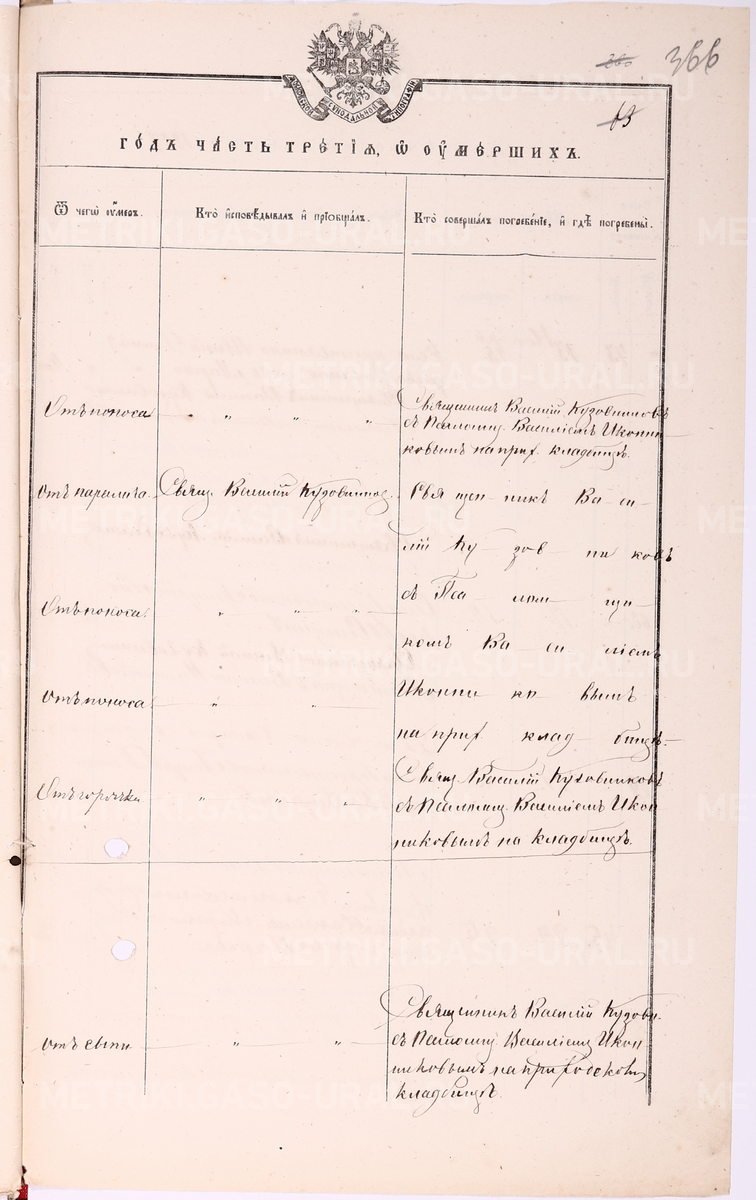 366
МОСКОВСКОЙ СѴНОДАЛЬНОЙ ТИПОГРАФІИ
63
ГОДЪ ЧАСТЬ ТРЕТІЯ, Ѡ ОУМЕРШИХЪ.
Ѿ чегѡ оумеръ.
Кто исповѣдывалъ и пріобщалъ.
Кто совершалъ погребеніе, и гдѣ погребены.
Отъ поноса
" " "
Священникъ Василій Кузовниковъ
съ Псаломщ. Василіемъ Иконни-
ковымъ на прих. кладбищѣ.
Отъ паралича.
Свящ. Василій Кузовников
Свя щен- никъ Ва- си-
лій Ку- зов- ни ковъ
Отъ поноса.
" " "
съ Пса- лом- щи-
комъ Ва- си- ліемъ
Отъ поноса
" "
Иконни ко- вымъ
на прих клад- бищѣ-
Отъ горячки
" " "
Свящ. Василій Кузовниковъ
съ Псаломщ. Василіемъ Икон-
никовымъ на кладбищѣ.
Отъ сыпи
" "
Священникъ Василій Кузовн.
съ Псаломщ. Василіемъ Икон
никовымъ на приходском
кладбищѣ.
METRIKI.GASO-URAL.RU